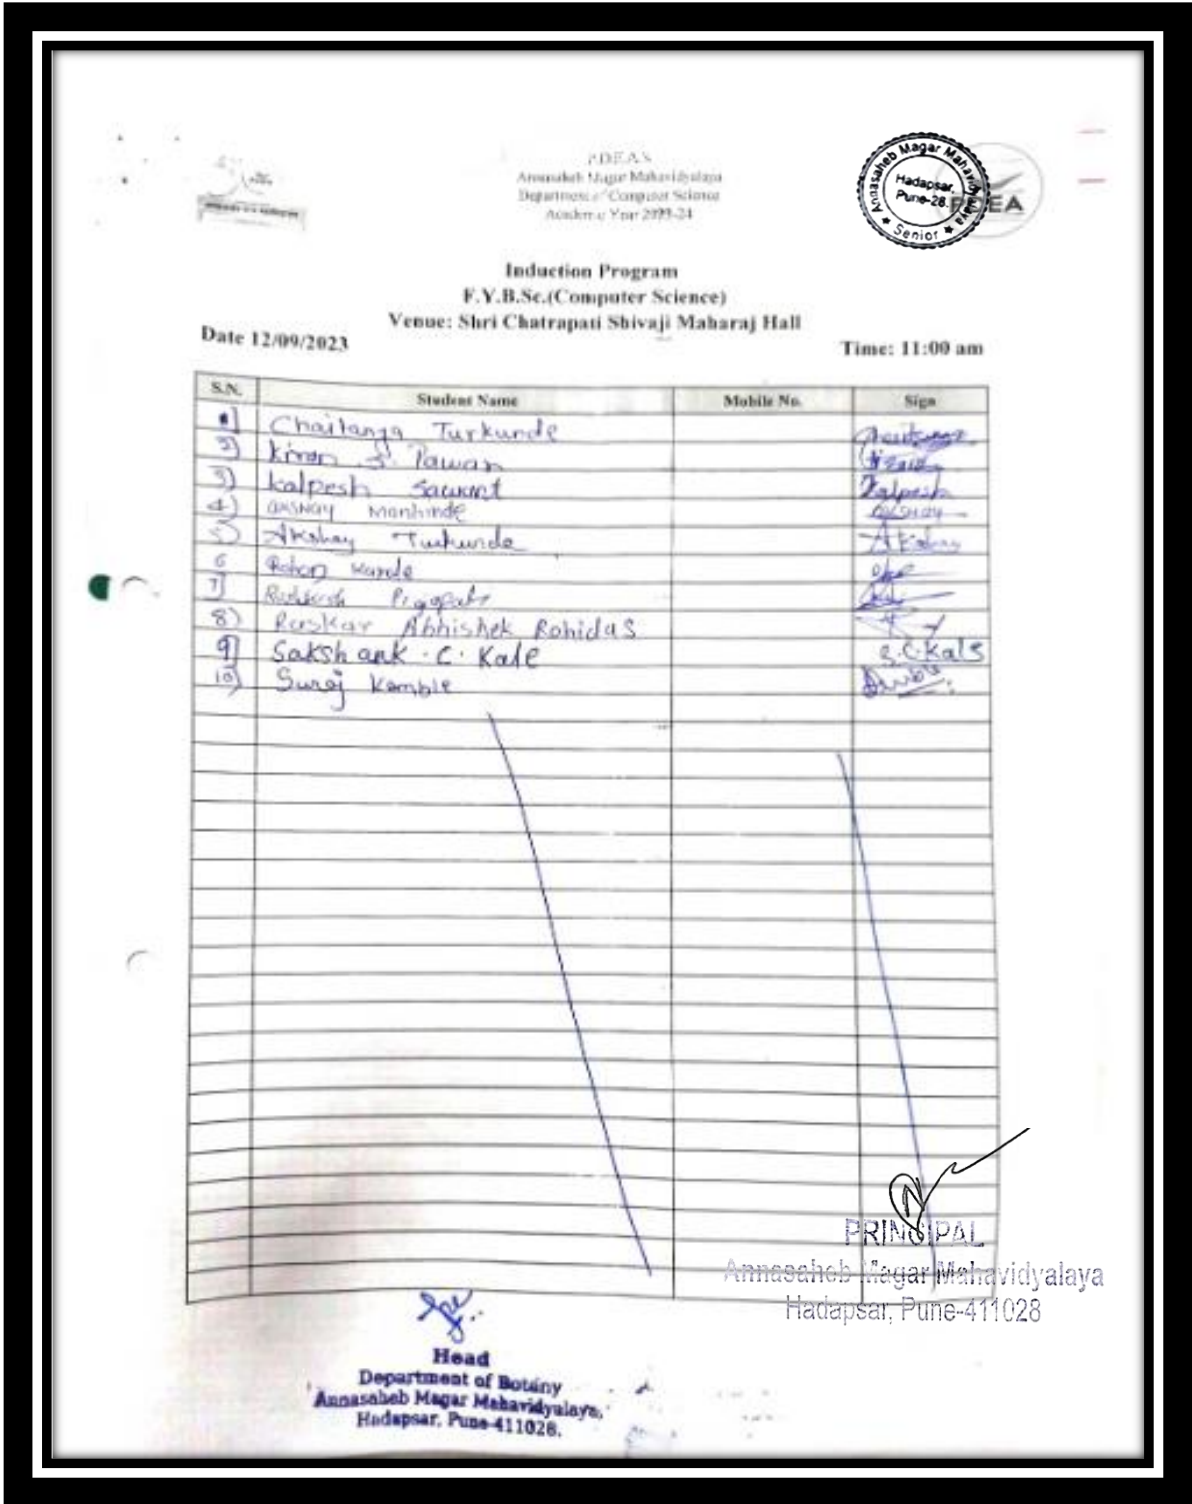 PDEA'S
Annasaheb Magar Mahavidyalaya
Department of Computer Science
Academic Year 2023-24
Annasaheb Magar Mahavidyalaya
Hadapsar,
Pune-28.
★ Senior ★
PDEA
Induction Program
F.Y.B.Sc.(Computer Science)
Venue: Shri Chatrapati Shivaji Maharaj Hall
Date 12/09/2023
Time: 11:00 am
S.N. Student Name Mobile No. Sign
1] Chaitanya Turkunde
2) Kiran S. Pawar
3) Kalpesh Sawant Kalpesh
4) Akshay
5) Akshay Turkunde Akshay
6 Rohan
7]
8) Raskar Abhishek Rohidas
9] Sakshank . C . Kale S.C.Kale
10) Suraj Kamble
PRINCIPAL
Annasaheb Magar Mahavidyalaya
Hadapsar, Pune-411028
Head
Department of Botany
Annasaheb Magar Mahavidyalaya,
Hadapsar, Pune-411028.